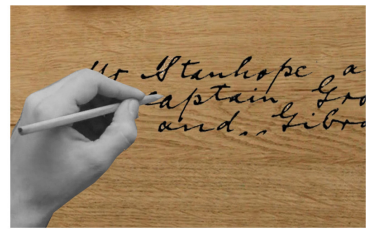 Mr Stanhope a
Captain Gro
and,, Gibra